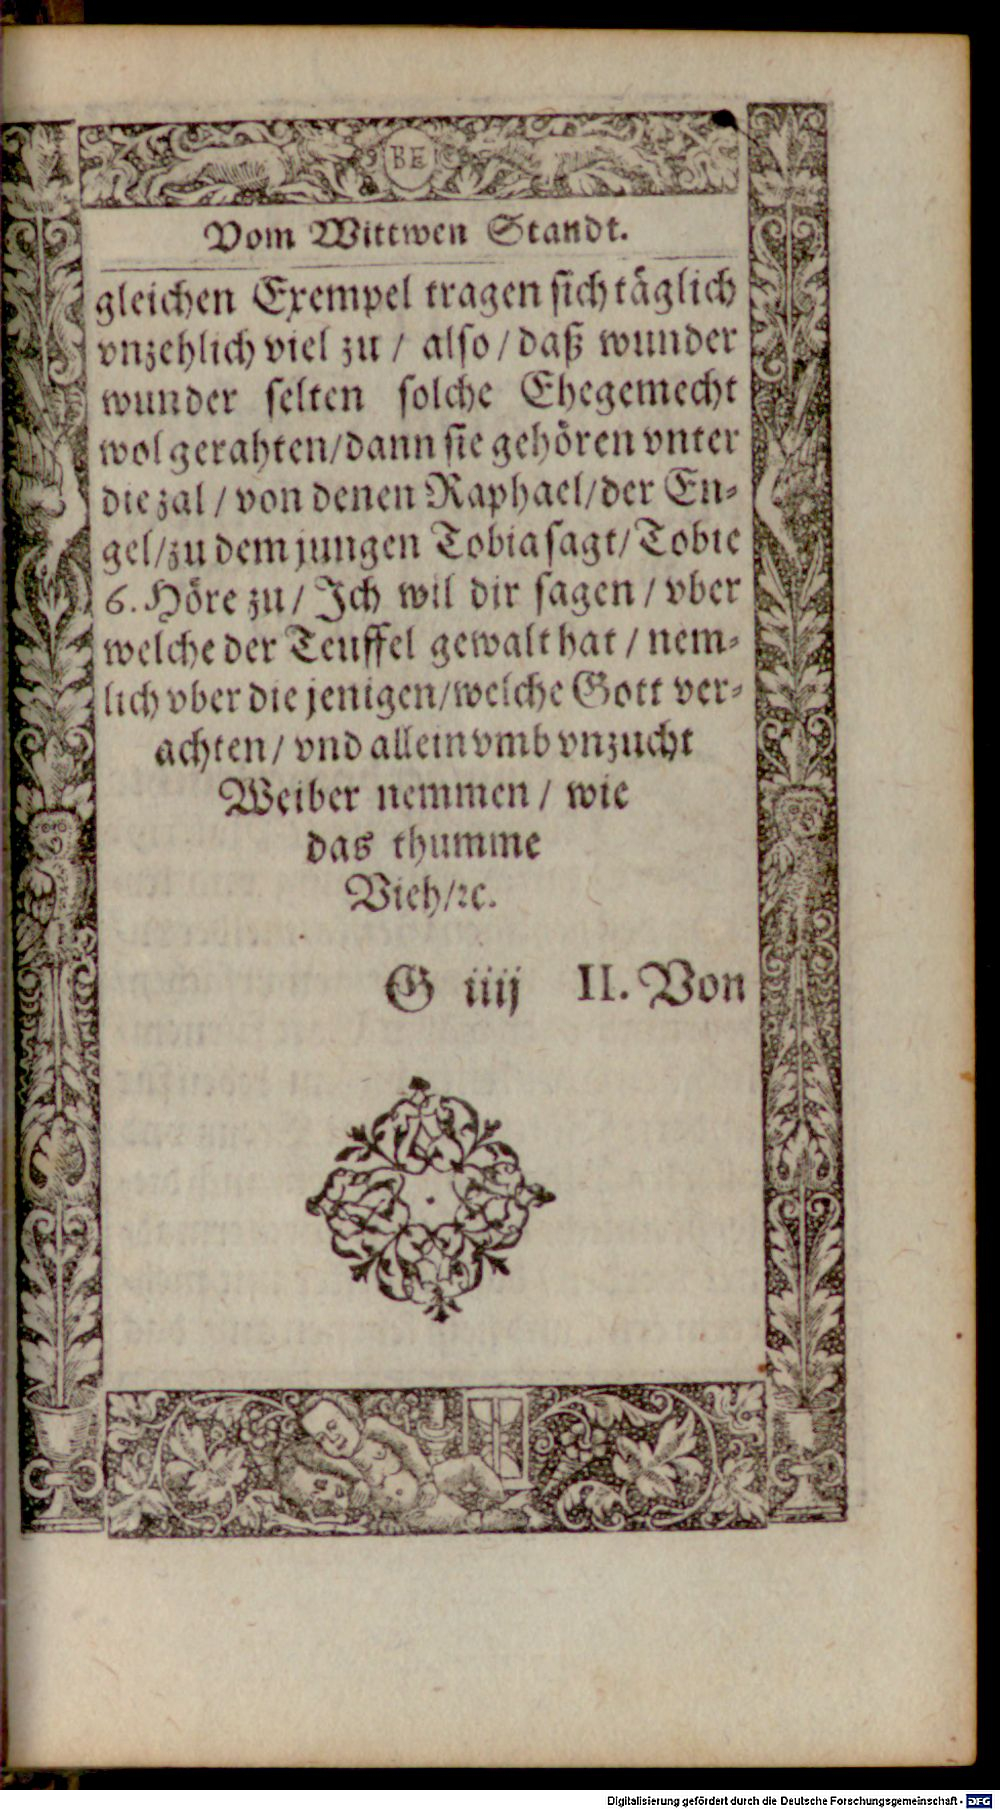 BE
Vom Wittwen Standt.
gleichen Exempel tragen sich täglich
vnzehlich viel zu / also / daß wunder
wunder selten solche Ehegemecht
wol gerahten / dann sie gehören vnter
die zal / von denen Raphael / der En⸗
gel / zu dem jungen Tobia sagt / Tobie
6. Höre zu / Ich wil dir sagen / vber
welche der Teuffel gewalt hat / nem⸗
lich vber die jenigen / welche Gott ver⸗
achten / vnd allein vmb vnzucht
Weiber nemmen / wie
das thumme
Vieh / ꝛc.
G iiij II. Von
Digitalisierung gefördert durch die Deutsche Forschungsgemeinschaft - DFG